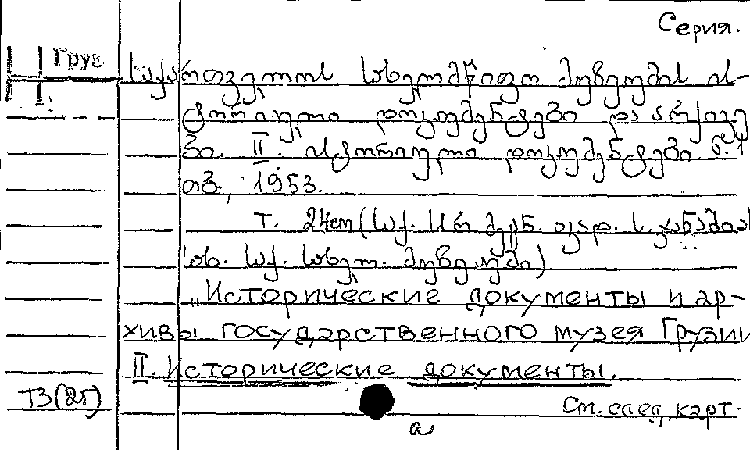 Серия.
Груз
საქართველოს სახელმწიფო მუზეუმის ის-
ტორიული დოკუმენტები და არქივე
ბი. II. ისტორიული დოკუმენტები. ნ. 1
თბ., 1953.
т. 24cm (საქ. სსრ მეცნ. აკად. ს. ჯანაშიას
სახ. საქ. სახელ. მუზეუმი)
„Исторические документы и ар-
хивы государственного музея Грузии
II. Исторические документы.
Т3(2Г)
См. след. карт.
а